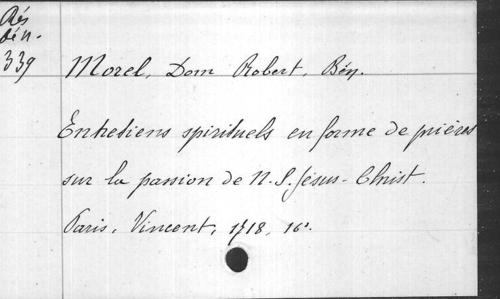 Rés
Bén.
339
Morel, Dom Robert, Bén.
Entretiens spirituels en forme de prières
sur la passion de N. S. Jésus-Christ.
Paris, Vincent, 1718, 16°.